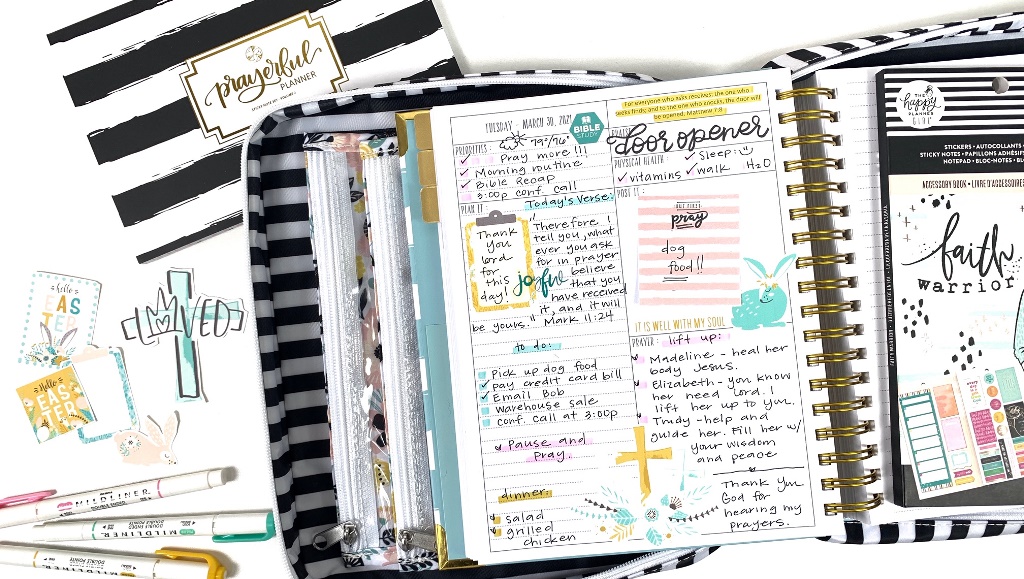 prayerful
PLANNER
hello
EASTER
Hello
EASTER
LOVED
MILDLINER
MILDLINER
MILDLINER
TUESDAY - MARCH 30, 2021
79°/76°
BIBLE
STUDY
PRIORITIES:
Pray more!!!
Morning routine
Bible Recap
3:00p conf. call
PLAN IT:
Today's Verse:
Thank
you
lord
for
this
joyful
day!
"Therefore I
tell you, what
ever you ask
for in prayer
believe
that you
have received
it, and it will
be yours." Mark 11:24
to do:
Pick up dog food
pay credit card bill
Email Bob
warehouse sale
conf. call at 3:00p
Pause and
Pray.
dinner:
salad
grilled
chicken
For everyone who asks receives; the one who
seeks finds; and to the one who knocks, the door will
be opened. Matthew 7:8
door opener
PHYSICAL HEALTH:
Sleep:
vitamins
walk
H2O
POST IT:
BUT FIRST
pray
dog
food!!
IT IS WELL WITH MY SOUL
PRAYER: lift up:
Madeline - heal her
body Jesus.
Elizabeth - you know
her need Lord. I
lift her up to you.
Trudy - help and
guide her. Fill her w/
your wisdom
and peace
Thank you
God for
hearing my
prayers.
THE
happy
PLANNER
GIRL
STICKERS • AUTOCOLLANTS
STICKY NOTES • PAPILLONS ADHÉSIF
NOTEPAD • BLOC-NOTES
ACCESSORY BOOK • LIVRE D'ACCESSOIRES
faith
warrior